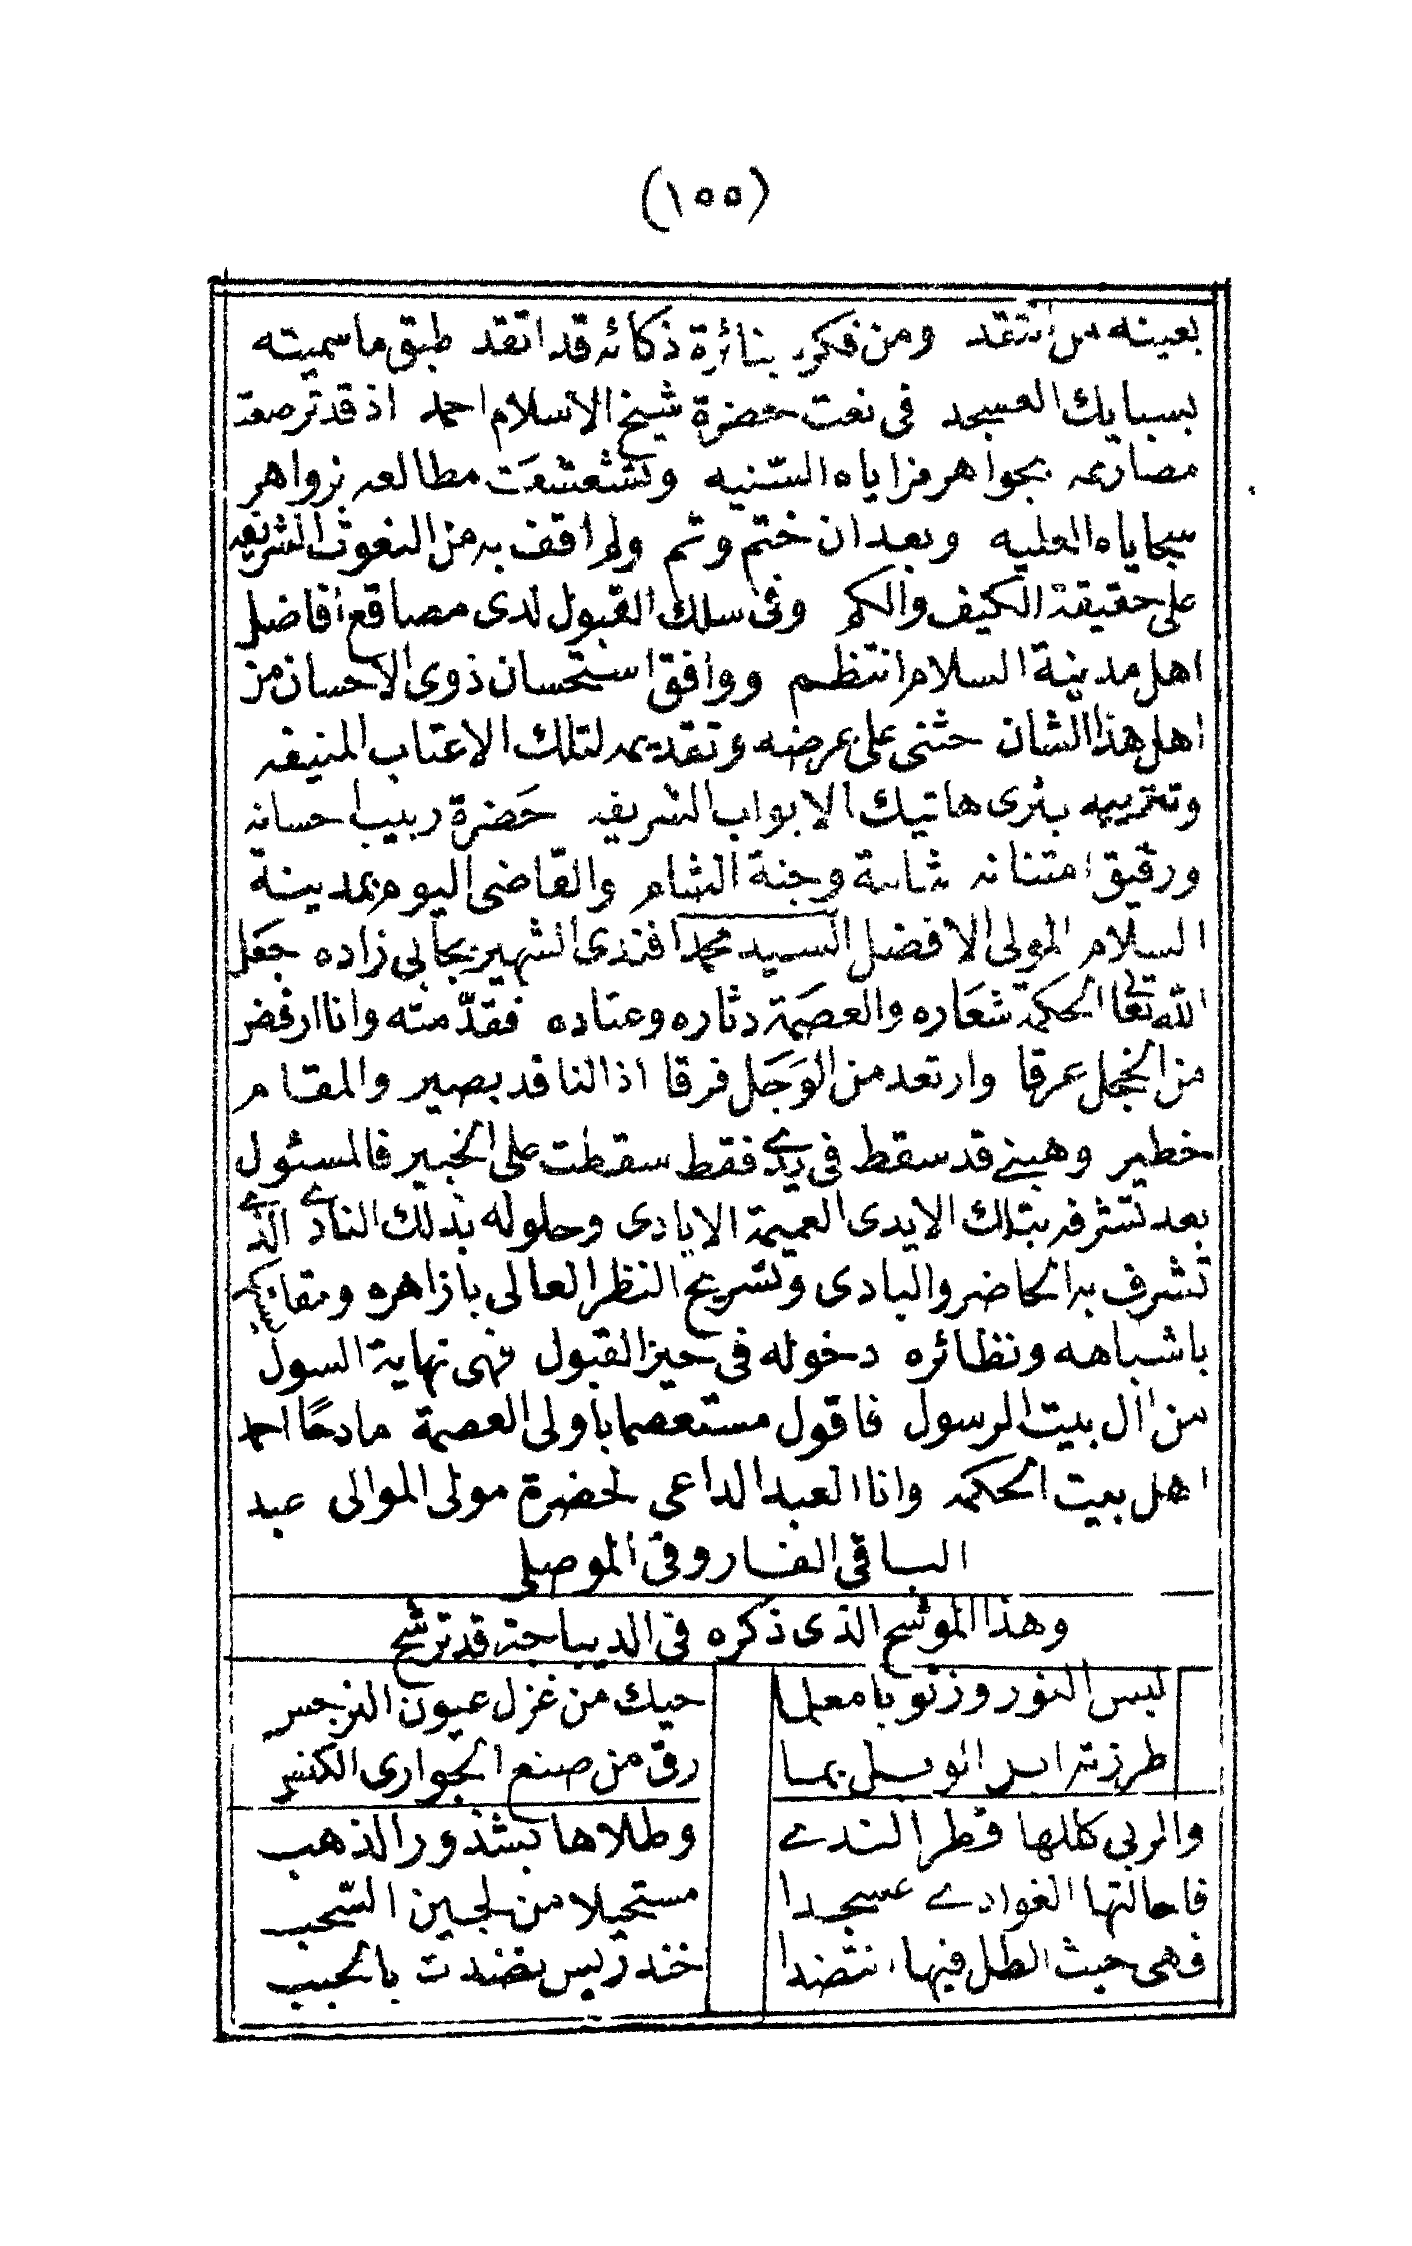 (١٥٥)
بعينه من انتقد ومن فكره بنائرة ذكائه قد اتقد طبق ما سميته
بسبايك العسجد في نعت حضرة شيخ الاسلام احمد اذ قد ترصعت
مصاريعه بجواهر مزاياه السّنيه وتشعشعَت مطالعه بزواهر
سجاياه العليه وبعد ان ختم وتم ولم اقف به من النعوت الشريفه
على حقيقة الكيف والكم وفي سلك القبول لدى مصاقع افاضل
اهل مدينة السلام انتظم ووافق استحسان ذوى الاحسان من
اهل هذا الشان حثنى على عرضه وتقديمه لتلك الاعتاب المنيفه
وتتريبه بثرى هاتيك الابواب الشريفه حَضرة ربيب احسانه
ورقيق امتنانه شامة وجنة الشام والقاضى اليوم بمدينة
السلام المولى الافضل السيد محمد افندى الشهير بجابي زاده جعَل
الله تعالى الحكمة شعَاره والعصَمة دثاره وعتاده فقدّمته وانا ارفضّ
من الخجل عرقا وارتعد من الوَجَل فرقا اذ الناقد بصير والمقام
خطير وهبنے قد سقط فى يدے فقط سقطت على الخبير فالمسئول
بعد تشرفه بتلك الايدى العميمة الايادى وحلوله بذلك النادے الذے
تشرف به الحاضر والبادى وتسريح النظر العالى بازاهره ومقايسته
باشباهه ونظائره دخوله فى حيز القبول فهى نهاية السول
من ال بيت الرسول فاقول مستعصما بأولى العصمة مادحًا احمد
اهل بيت الحكمه وانا العبد الداعى لحضرة مولى الموالى عبد
الباقي الفاروقى الموصلى
وهذا الموشح الذى ذكره فى الديباجة قد ترشح
لبس النوروز ثوبا معلما حيك من غزل عيون النرجس
طرزته ابر الوبل بما رق من صنع الجوارى الكنس
والربي كللها قطر الندے وطلاها بشذور الذهب
فاحالتها الغوادے عسجدا مستحيلا من لجين السّحب
فهى حيث الطل فيها انتضدا خندريس نضدت بالحبب